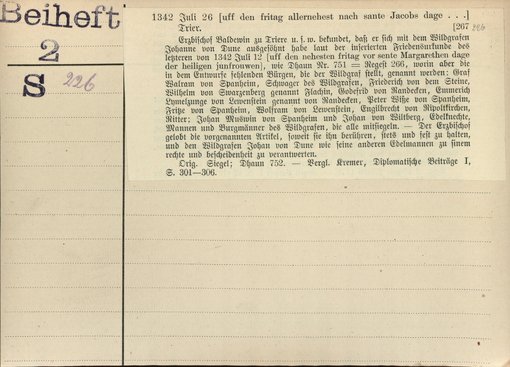 Beiheft
2
S 226
1342 Juli 26 [uff den fritag allernehest nach sante Jacobs dage . . .]
Trier. [267 226
Erzbischof Baldewin zu Triere u. s. w. bekundet, daß er sich mit dem Wildgrafen
Johanne von Dune ausgesöhnt habe laut der inserierten Friedensurkunde des
letzteren von 1342 Juli 12 [uff den nehesten fritag vor sente Margarethen dage
der heiligen junfrouwen], wie Dhaun Nr. 751 = Regest 266, worin aber die
in dem Entwurfe fehlenden Bürgen, die der Wildgraf stellt, genannt werden: Graf
Walram von Spanheim, Schwager des Wildgrafen, Friederich von dem Steine,
Wilhelm von Swarzenberg genannt Flachin, Godefrid von Randecken, Emmerich
Lymelzunge von Lewenstein genannt von Randecken, Peter Wiße von Spanheim,
Fritze von Spanheim, Wolfram von Lewenstein, Engilbrecht von Ripoltkirchen,
Ritter; Johan Mußwin von Spanheim und Johan von Wiltberg, Edelknechte,
Mannen und Burgmänner des Wildgrafen, die alle mitsiegeln. — Der Erzbischof
gelobt die vorgenannten Artikel, soweit sie ihn berühren, stets und fest zu halten,
und den Wildgrafen Johan von Dune wie seine anderen Edelmannen zu sinem
rechte und bescheidenheit zu verantwerten.
Orig. Siegel; Dhaun 752. — Vergl. Kremer, Diplomatische Beiträge I,
S. 301—306.